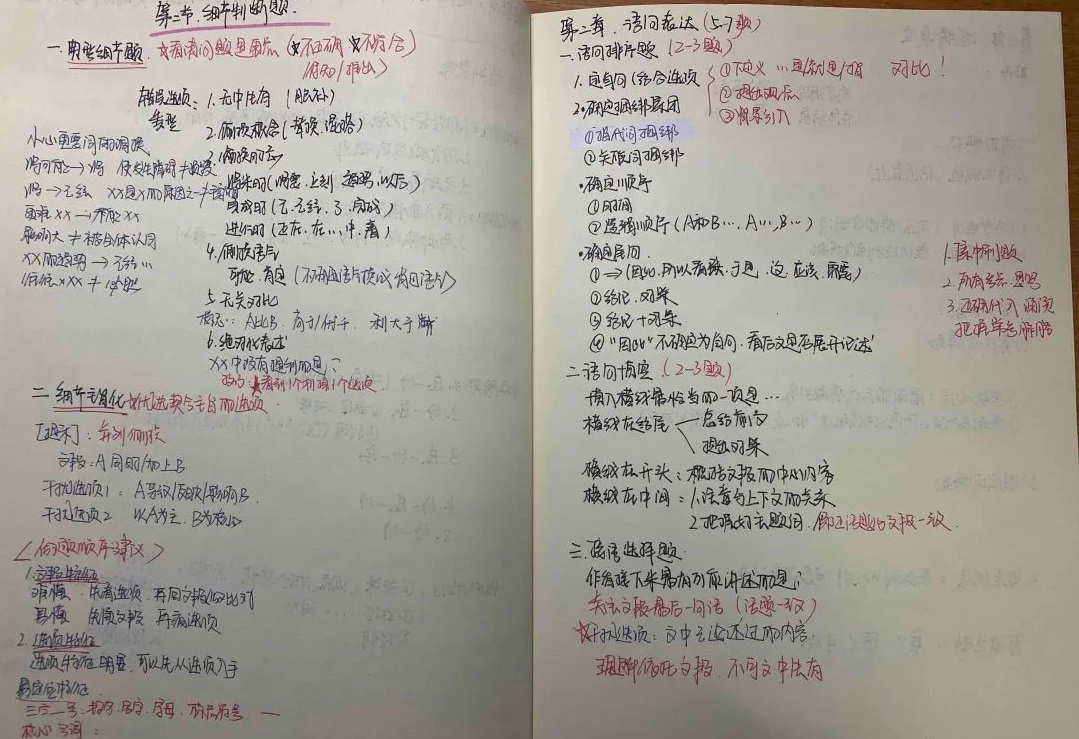 第二节. 细节判断题.
一. 明显细节题. ☆看清问题是重点 (☆不正确 ☆不符合)
(得知/推出)
错误选项: 1. 无中生有 (脑补)
类型 2. 偷换概念 (替换、混略)
3. 偷换时态
将来的 (需要、上刻 以后)
完成的 (已、已经、了、完成)
进行的 (正在、在…中、着)
小心重要词的调换
将可能→将
将→已经 XX是X的原因之一≠
XX≠
影响大≠被全体认同
XX的趋势→已经…
XX≠
4. 偷换语气
可能、肯定 (不确定语气换成肯定语气)
5. 无关对比
标志: A比B. 高于/低于. 利大于弊
6. 绝对化表述
XX中没有提到的是?
技巧: ★看到1个排除1个选项
二 细节主旨化 优先选契合主旨的选项
[题干]: 并列偷换
文段: A同时/加上B
干扰选项1: A导致/反映/影响B
干扰选项2 以A为主、B为
〈做题顺序建议〉
1. 文段特征
难懂 先看选项 再回文段做比对
易懂 先读文段 再看选项
2. 选项特征
选项特征明显, 可以先从选项入手
易定位特征.
三字一号: 数字、字母、标点符号 —
核心名词:
第二章. 语句表达 (5-7题)
一. 语句排序题 (2-3题)
1. 定首句 (结合选项 ①下定义 …是/就是/指 对比!
②提出观点
③背景引入
2. 确定捆绑集团
①指代词捆绑
②关联词捆绑
·确定顺序
①时间
②逻辑顺序 (A和B…, A…, B…)
·确定尾句
①→ (因此、所以看来、于是、这、应该、需要)
②结论、对策
③结论+对策
④“因此”不确定为尾句, 看后文是否展开论述
1. 集中刷题
2. 所有
3. 正确代入 通读
把
二. 语句填空 (2-3题)
填入横线最恰当的一项是…
横线在结尾 总结前文
提出对策
横线在开头: 概括文段的中心内容
横线在中间: 1. 注意与上下文的关系
2. 把握好主题词, 保证话题与文段一致.
三. 接语选择题.
作者接下来最有可能讲述的是?
关注文段最后一句话 (话题一致)
☆干扰选项: 文中已论述过的内容
理解依托文段, 不可无中生有